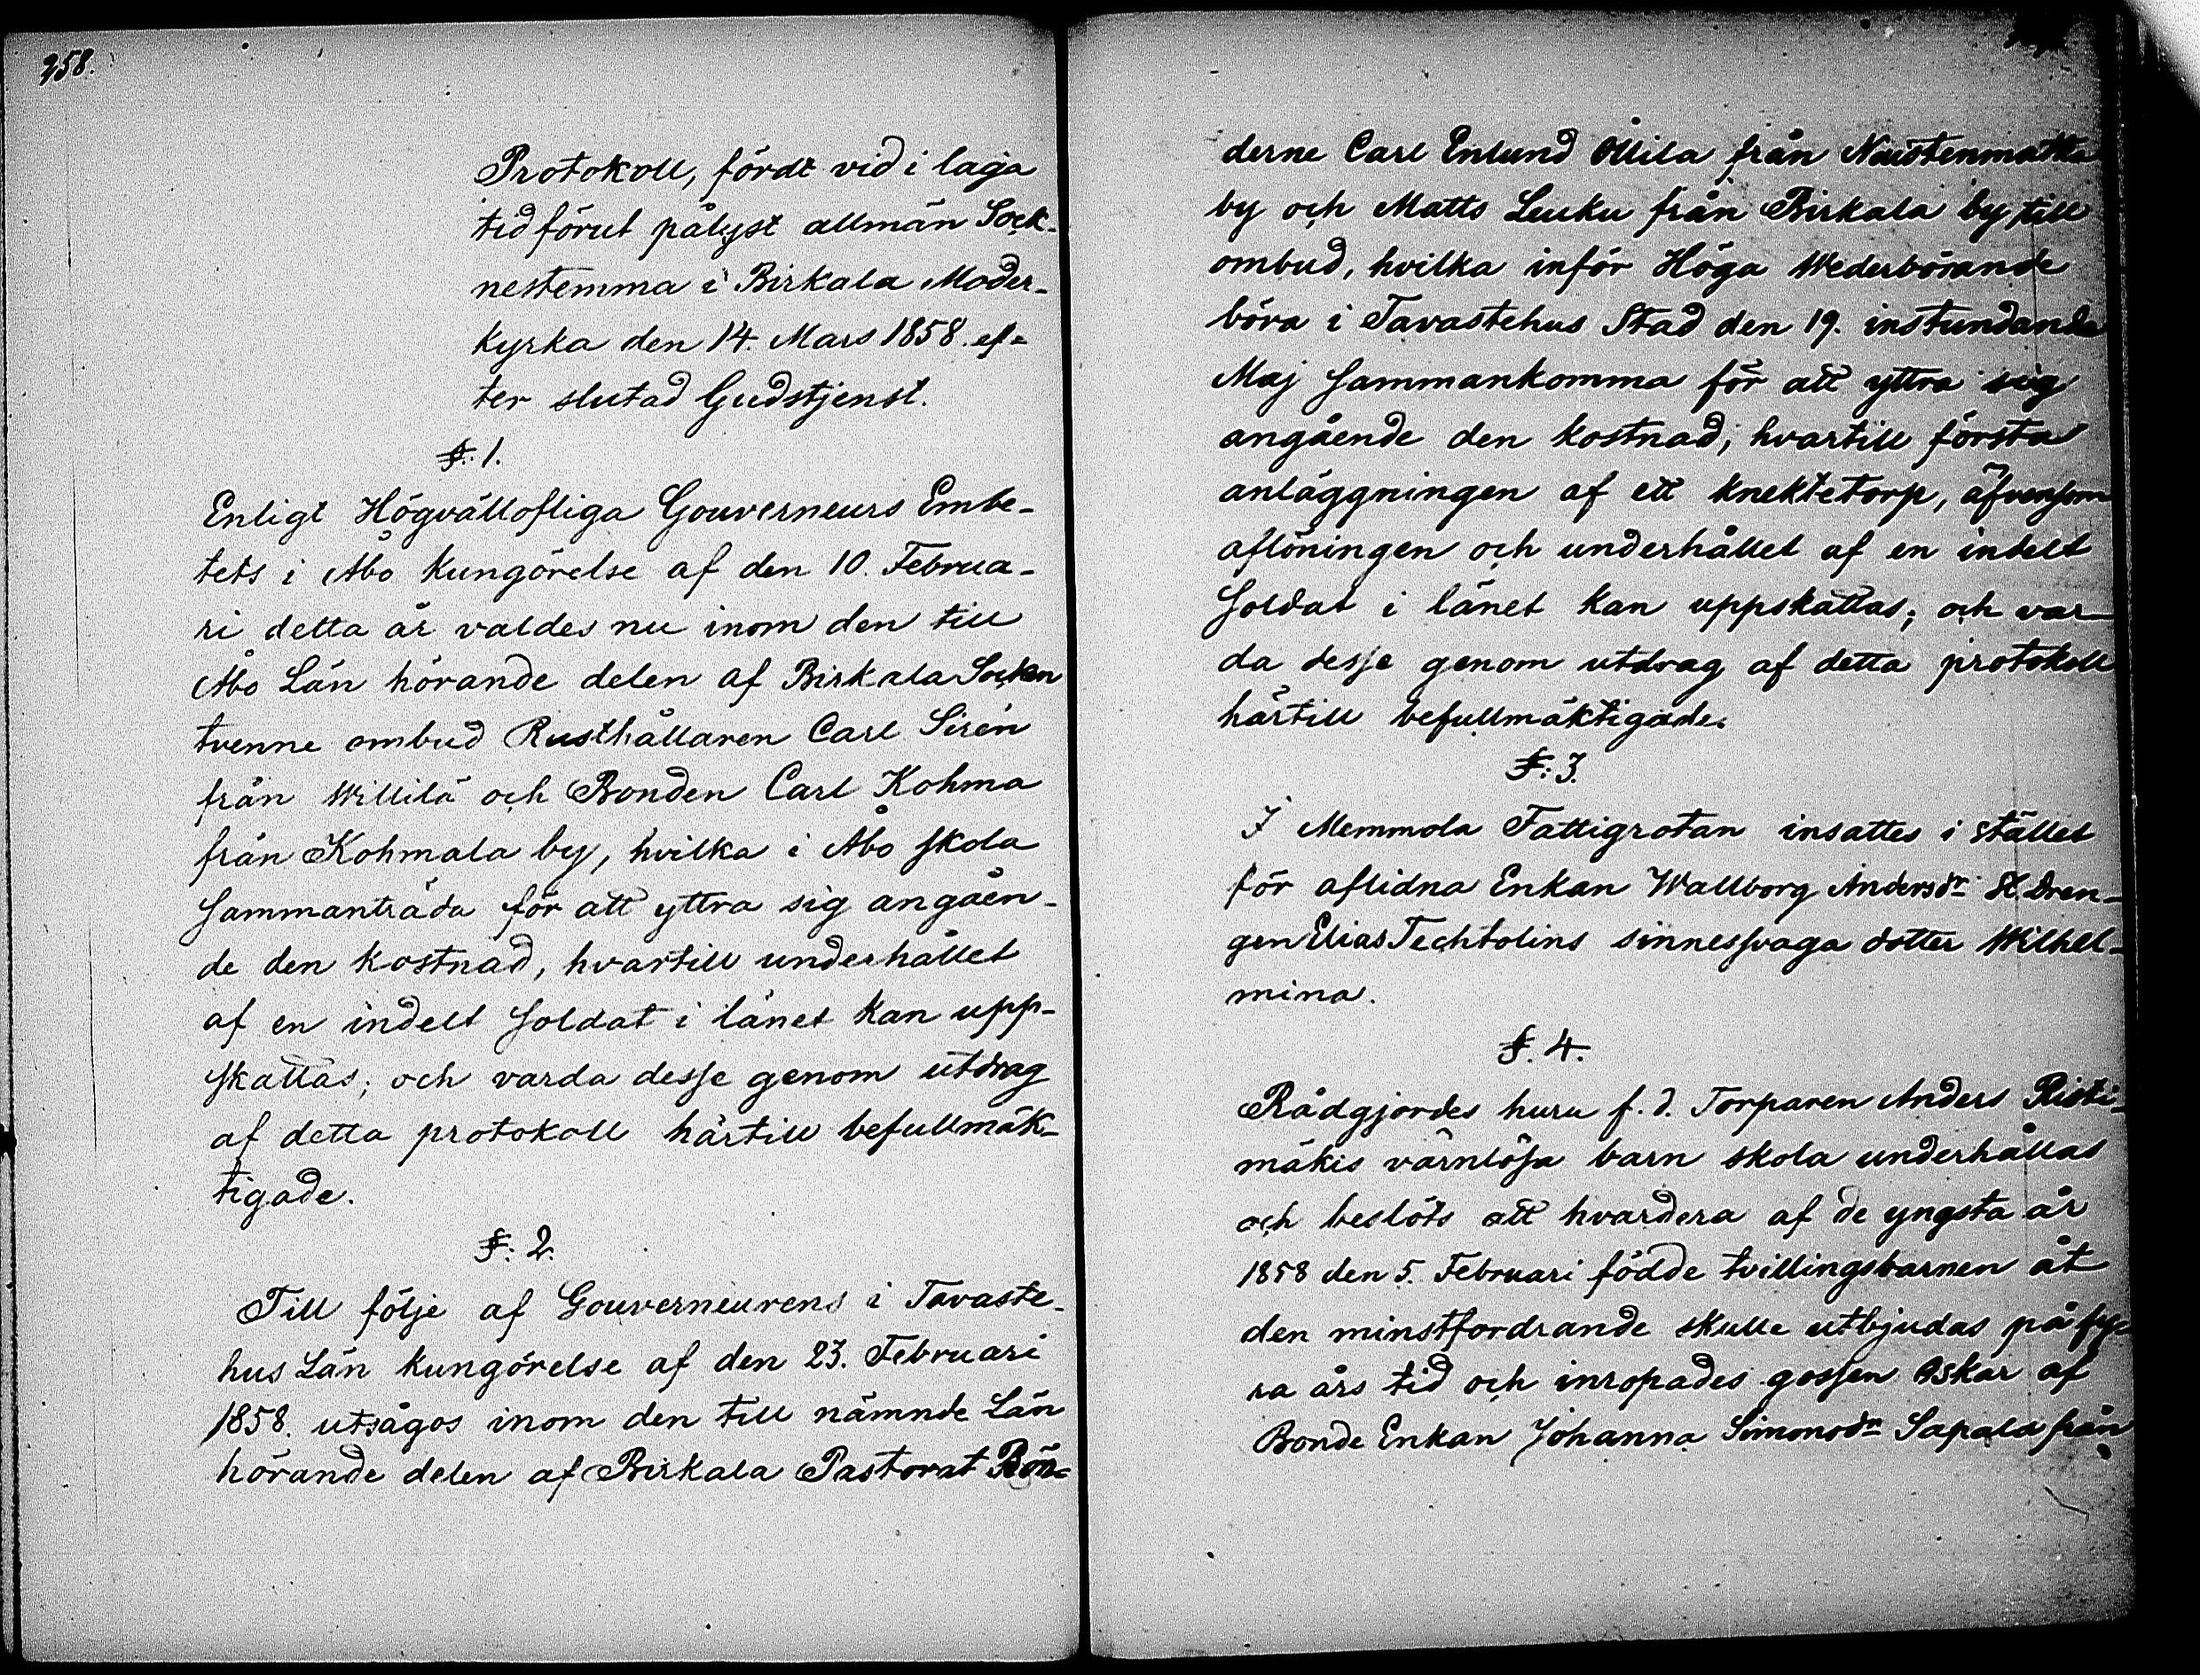 258.
Protokoll, fördt vid i laga
tid förut pålyst allmän Sock-
nestemma i Birkala Moder-
kyrka den 14. Mars 1858. ef-
ter slutad Gudstjenst.
§: 1.
Enligt Högvällofliga Gouverneurs Embe-
tets i Åbo Kungörelse af den 10. Februa-
ri detta år valdes nu inom den till
Åbo Län hörande delen af Birkala Socken
tvenne ombud Rusthållaren Carl Sirén
från Willilä och Bonden Carl Kohma
från Kohmala by, hvilka i Åbo skola
sammanträda för att yttra sig angåen-
de den kostnad, hvartill underhållet
af en indelt soldat i länet kan upp-
skattas; och varda desse genom utdrag
af detta protokoll härtill befullmäk-
tigade.
§: 2.
Till följe af Gouverneurens i Tavaste-
hus Län kungörelse af den 23. Februari
1858. utsågos inom den till nämnde Län
hörande delen af Birkala Pastorat Bön-
derne Carl Enlund Ollila från
by och Matts Luuku från Birkala by till
ombud, hvilka inför Höga Wederbörande
böra i Tavastehus Stad den 19. instundande
Maj sammankomma för att yttra sig
angående den kostnad, hvartill första
anläggningen af ett knektetorp, äfvensom
aflöningen och underhållet af en indelt
soldat i länet kan uppskattas; och var-
da desse genom utdrag af detta protokoll
härtill befullmäktigade.
§: 3.
I Memmola Fattigrotan insattes i stället
för aflidna Enkan Wallborg Andersdr Dren-
gen Elias Techtolins sinnessvaga dotter Wilhel-
mina.
§. 4.
Rådgjordes huru f. d. Torparen Anders Risti-
mäkis värnlösa barn skola underhållas
och beslöts att hvardera af de yngsta år
1858 den 5. Februari födde tvillingsbarnen åt
den minstfordrande skulle utbjudas på fy-
ra års tid och inropades gossen Oskar af
Bonde Enkan Johanna Simonsdr Sapala från